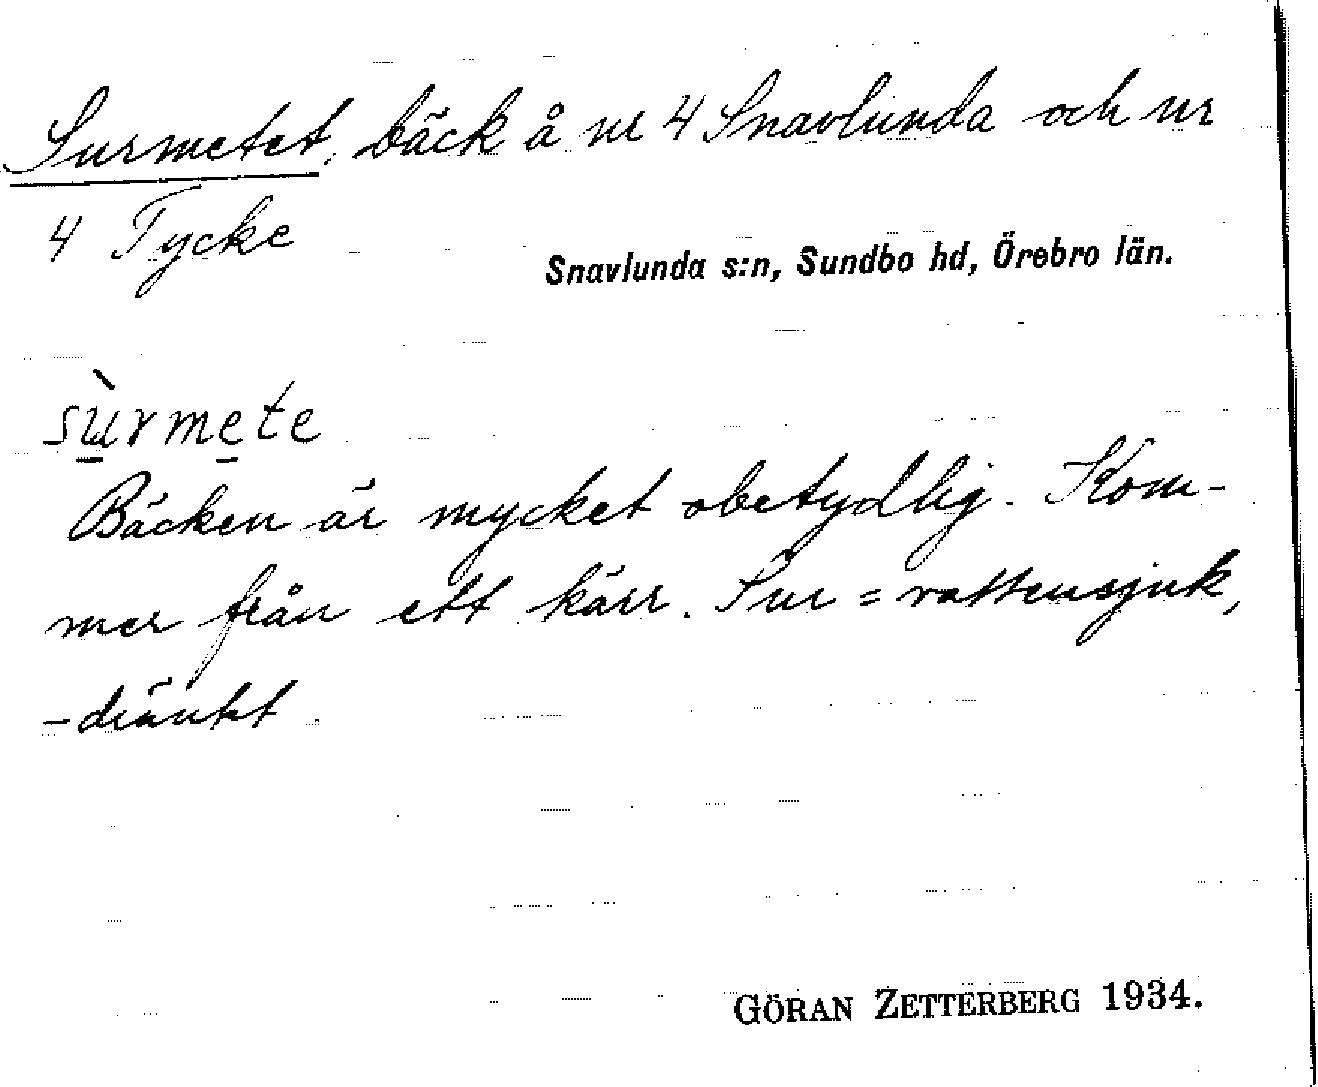 Surmetet, bäck å nr 4 Snavlunda och nr
4 Tycke
Snavlunda s:n, Sundbo hd, Örebro län.
sùrmete
Bäcken är mycket obetydlig. Kom-
mer från ett kärr. Sur = vattensjuk,
-dränkt.
GÖRAN ZETTERBERG 1934.